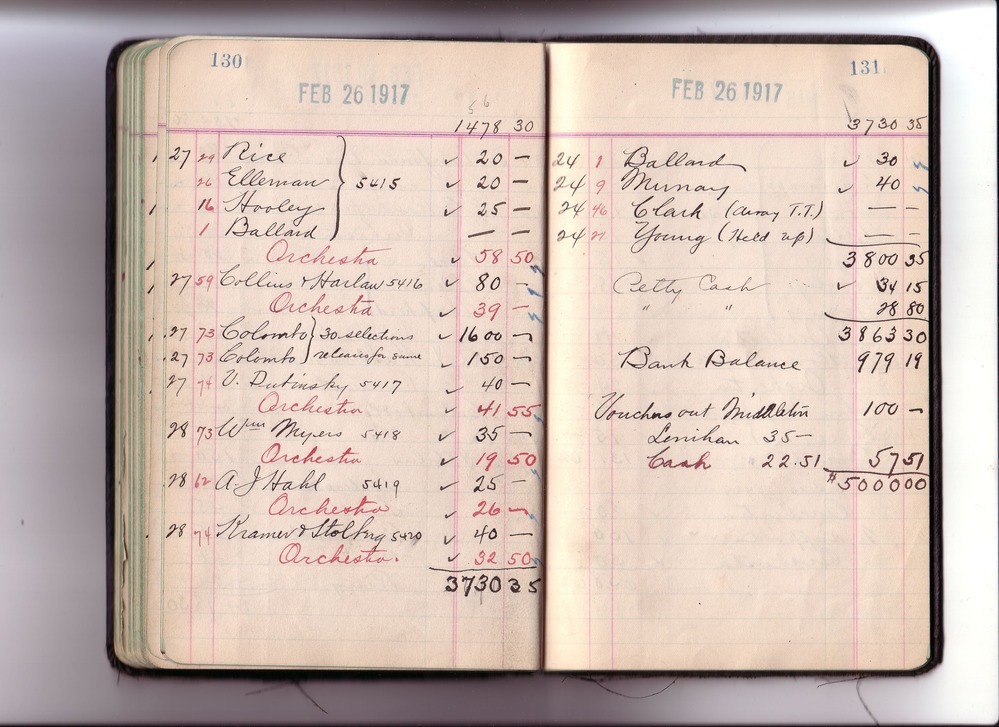 130
FEB 26 1917
56
1478 30
27 29 Rice ✓ 20 —
26 Ellerman } 5415 ✓ 20 —
16 Hooley ✓ 25 —
1 Ballard — —
Orchestra ✓ 58 50
27 59 Collins & Harlan 5416 ✓ 80 —
Orchestra ✓ 39 —
27 73 Colombo } 30 selections ✓ 1600 —
27 73 Colombo } releases for same ✓ 150 —
27 74 V. 5417 ✓ 40 —
Orchestra ✓ 41 55
28 73 Wm Myers 5418 ✓ 35 —
Orchestra ✓ 19 50
28 62 A J Hahl 5419 ✓ 25 —
Orchestra ✓ 26 —
28 74 Kramer & Stolberg 5420 ✓ 40 —
Orchestra. ✓ 32 50
3730 35
131
FEB 26 1917
3730 35
24 1 Ballard ✓ 30
24 9 Murray ✓ 40
24 46 Clark (away T.T.) — —
24 21 Young (Held up) — —
3800 35
Petty Cash ✓ 34 15
" " 28 80
3863 30
Bank Balance 979 19
Vouchers out Middleton 100 —
Lenihan 35 —
Cash 22.51 57 51
$5000 00